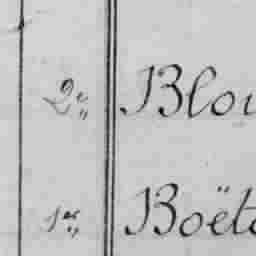 2e,, Blou
1er,, Boët